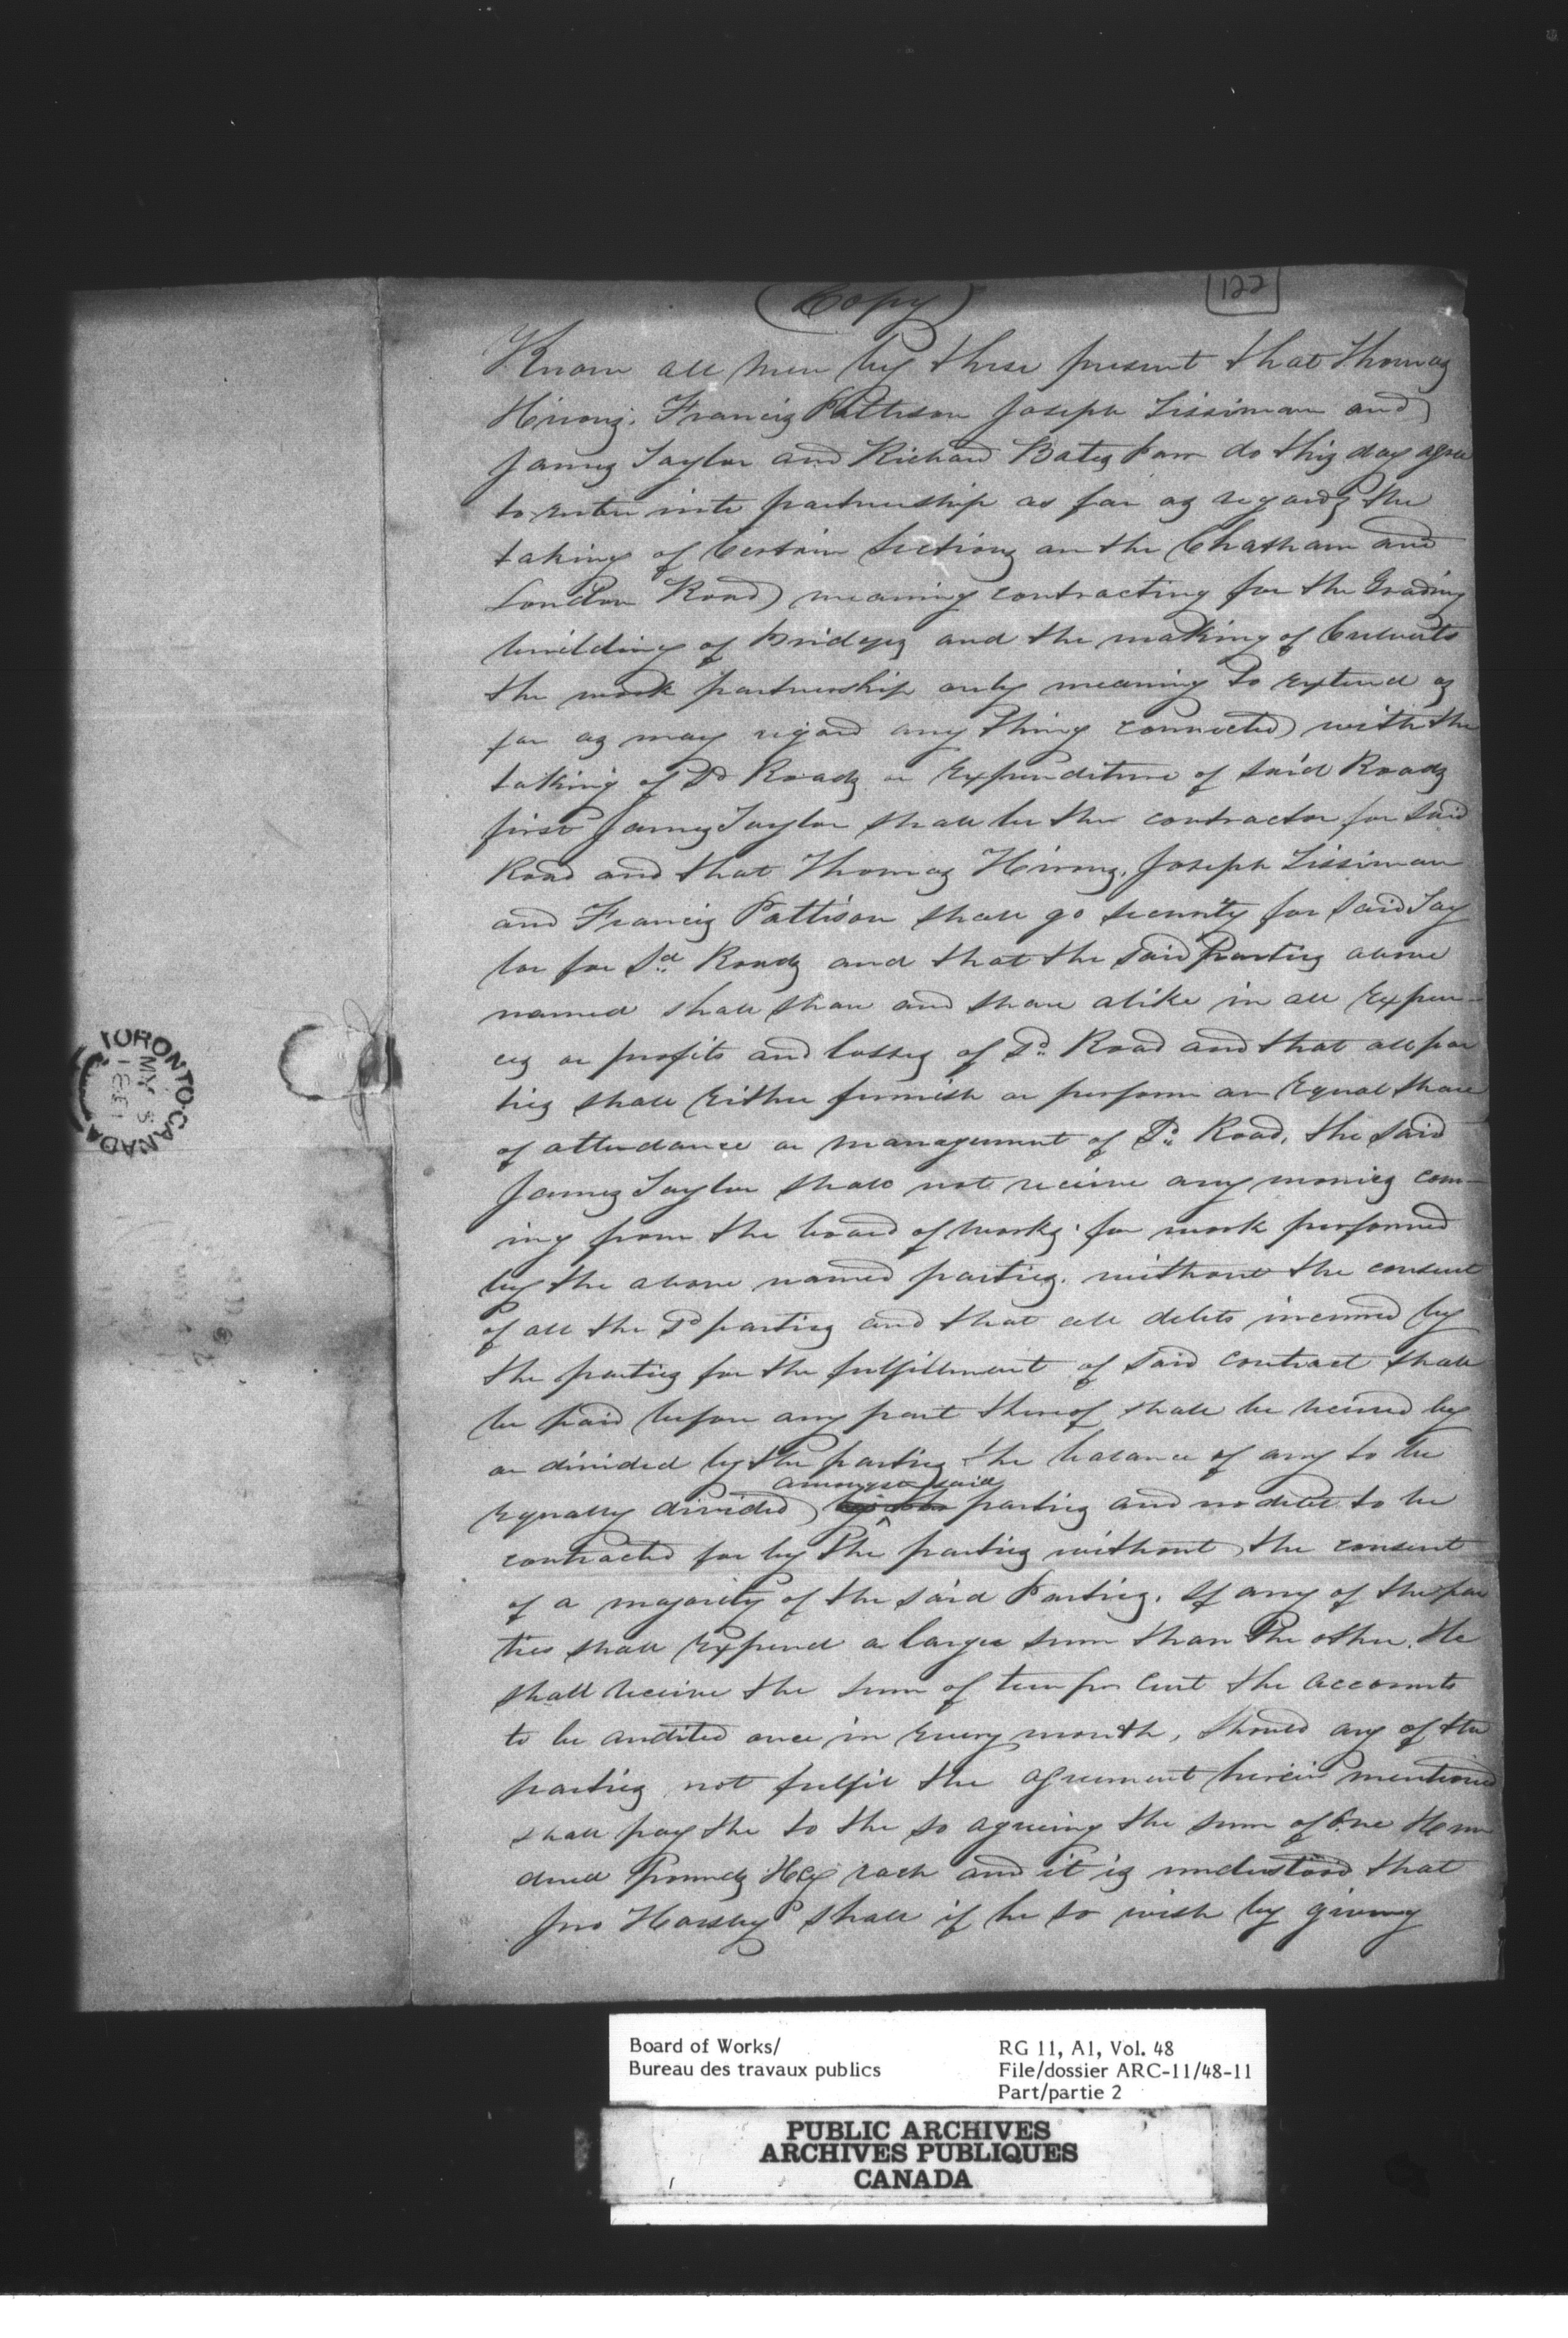 (Copy)
122
Know all men by these present that Thomas
Hirons, Francis Pattison Joseph Lissiman and
James Taylor and Richard Bates Parr do this day agree
to enter into partnership as far as regards the
taking of Certain Sections on the Chatham and
London Road meaning contracting for the Grading
building of Bridges and the making of Culverts
the partnership only meaning to extend as
far as may regard any thing connected with the
taking of Sd Roads or Expenditure of said Roads
first James Taylor shall be the contractor for said
Road and that Thomas Hirons, Joseph Lissiman
and Francis Pattison shall go security for said Tay
lor for Sd Roads and that the said Parties above
named shall share and share alike in all Expen-
ces or profits and losses of Sd Road and that all par
ties shall Either furnish or perform an Equal share
of attendance or management of Sd Road, the said
James Taylor shall not receive any monies com-
ing from the board of works for work performed
by the above named parties. without the consent
of all the Sd parties and that all debts incurred by
the parties for the fulfillment of said contract shall
be paid before any part thereof shall be received by
or divided by the parties the balance if any to be
amongst said
Equally divided parties and no debt to be
contracted for by the parties without the consent
of a majority of the said Parties. If any of the par
ties shall Expend a larger sum than the other. He
shall receive the sum of ten per Cent the accounts
to be audited once in Every month, should any of the
parties not fulfil the agreement herein mentioned
shall pay the to the so agreeing the sum of One Hun
dred Pounds HCy each and it is understood that
Jno Harsley shall if he so wish by giving
TORONTO.CANADA
MY 8
Board of Works/
Bureau des travaux publics
RG 11, A1, Vol. 48
File/dossier ARC-11/48-11
Part/partie 2
PUBLIC ARCHIVES
ARCHIVES PUBLIQUES
CANADA